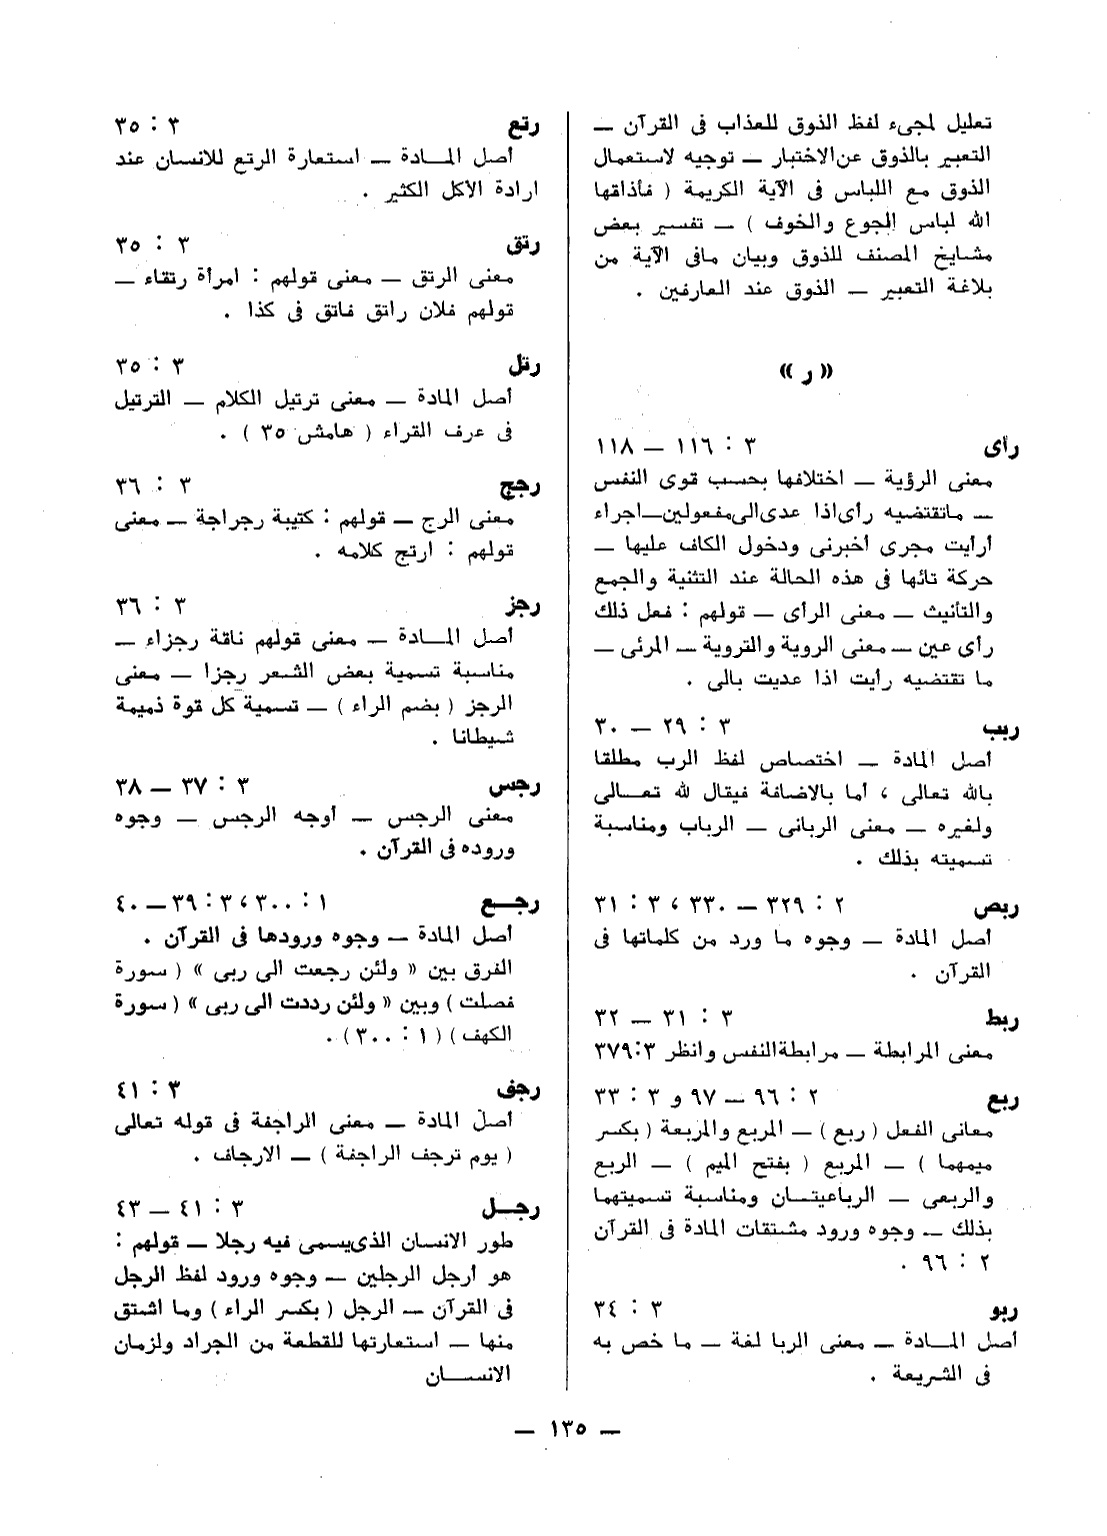 تعليل لمجىء لفظ الذوق للعذاب فى القرآن —
التعبير بالذوق عن الاختبار — توجيه لاستعمال
الذوق مع اللباس فى الآية الكريمة ( فأذاقها
الله لباس الجوع والخوف ) — تفسير بعض
مشايخ المصنف للذوق وبيان مافى الآية من
بلاغة التعبير — الذوق عند العارفين .
« ر »
رأى ٣ : ١١٦ — ١١٨
معنى الرؤية — اختلافها بحسب قوى النفس
— ماتقتضيه رأى اذا عدى الى مفعولين — اجراء
أرأيت مجرى أخبرنى ودخول الكاف عليها —
حركة تائها فى هذه الحالة عند التثنية والجمع
والتأنيث — معنى الرأى — قولهم : فعل ذلك
رأى عين — معنى الروية والتروية — المرئى —
ما تقتضيه رأيت اذا عديت بالى .
ربب ٣ : ٢٩ — ٣٠
أصل المادة — اختصاص لفظ الرب مطلقا
بالله تعالى ، أما بالاضافة فيقال لله تعــالى
ولغيره — معنى الربانى — الرباب ومناسبة
تسميته بذلك .
ربص ٢ : ٣٢٩ — ٣٣٠ ، ٣ : ٣١
أصل المادة — وجوه ما ورد من كلماتها فى
القرآن .
ربط ٣ : ٣١ — ٣٢
معنى المرابطة — مرابطة النفس وانظر ٣ : ٣٧٩
ربع ٢ : ٩٦ — ٩٧ و ٣ : ٣٣
معانى الفعل ( ربع ) — المربع والمربعة ( بكسر
ميمهما ) — المربع ( بفتح الميم ) — الربع
والربعى — الرباعيتــان ومناسبة تسميتهما
بذلك — وجوه ورود مشتقات المادة فى القرآن
٢ : ٩٦ .
ربو ٣ : ٣٤
أصل المــادة — معنى الربا لغة — ما خص به
فى الشريعة .
رتع ٣ : ٣٥
أصل المــادة — استعارة الرتع للانسان عند
ارادة الأكل الكثير .
رتق ٣ : ٣٥
معنى الرتق — معنى قولهم : امرأة رتقاء —
قولهم فلان راتق فاتق فى كذا .
رتل ٣ : ٣٥
أصل المادة — معنى ترتيل الكلام — الترتيل
فى عرف القراء ( هامش ٣٥ ) .
رجج ٣ : ٣٦
معنى الرج — قولهم : كتيبة رجراجة — معنى
قولهم : ارتج كلامه .
رجز ٣ : ٣٦
أصل المــادة — معنى قولهم ناقة رجزاء —
مناسبة تسمية بعض الشعر رجزا — معنى
الرجز ( بضم الراء ) — تسمية كل قوة ذميمة
شيطانا .
رجس ٣ : ٣٧ — ٣٨
معنى الرجس — أوجه الرجس — وجوه
وروده فى القرآن .
رجــع ١ : ٣٠٠ ، ٣ : ٣٩ — ٤٠
أصل المادة — وجوه ورودها فى القرآن .
الفرق بين « ولئن رجعت الى ربى » ( سورة
فصلت ) وبين « ولئن رددت الى ربى » ( سورة
الكهف ) ( ١ : ٣٠٠ ) .
رجف ٣ : ٤١
أصل المادة — معنى الراجفة فى قوله تعالى
( يوم ترجف الراجفة ) — الارجاف .
رجــل ٣ : ٤١ — ٤٣
طور الانسان الذى يسمى فيه رجلا — قولهم :
هو أرجل الرجلين — وجوه ورود لفظ الرجل
فى القرآن — الرجل ( بكسر الراء ) وما اشتق
منها — استعارتها للقطعة من الجراد ولزمان
الانســان
— ١٣٥ —